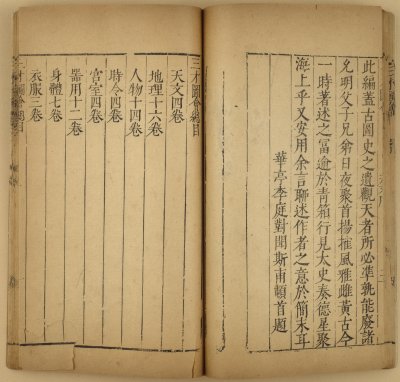 此編蓋古圖史之遺觀天者所必準孰能廢諸
允明父子兄翁日夜聚首揚榷風雅雌黃古今
一時著述之富逾於青箱行見太史奏德星聚
海上乎又安用余言聊述作者之意於簡末耳
華亭李庭對聞斯甫頓首題
三才圖會總目
天文四卷
地理十六卷
人物十四卷
時令四卷
宮室四卷
器用十二卷
身體七卷
衣服三卷